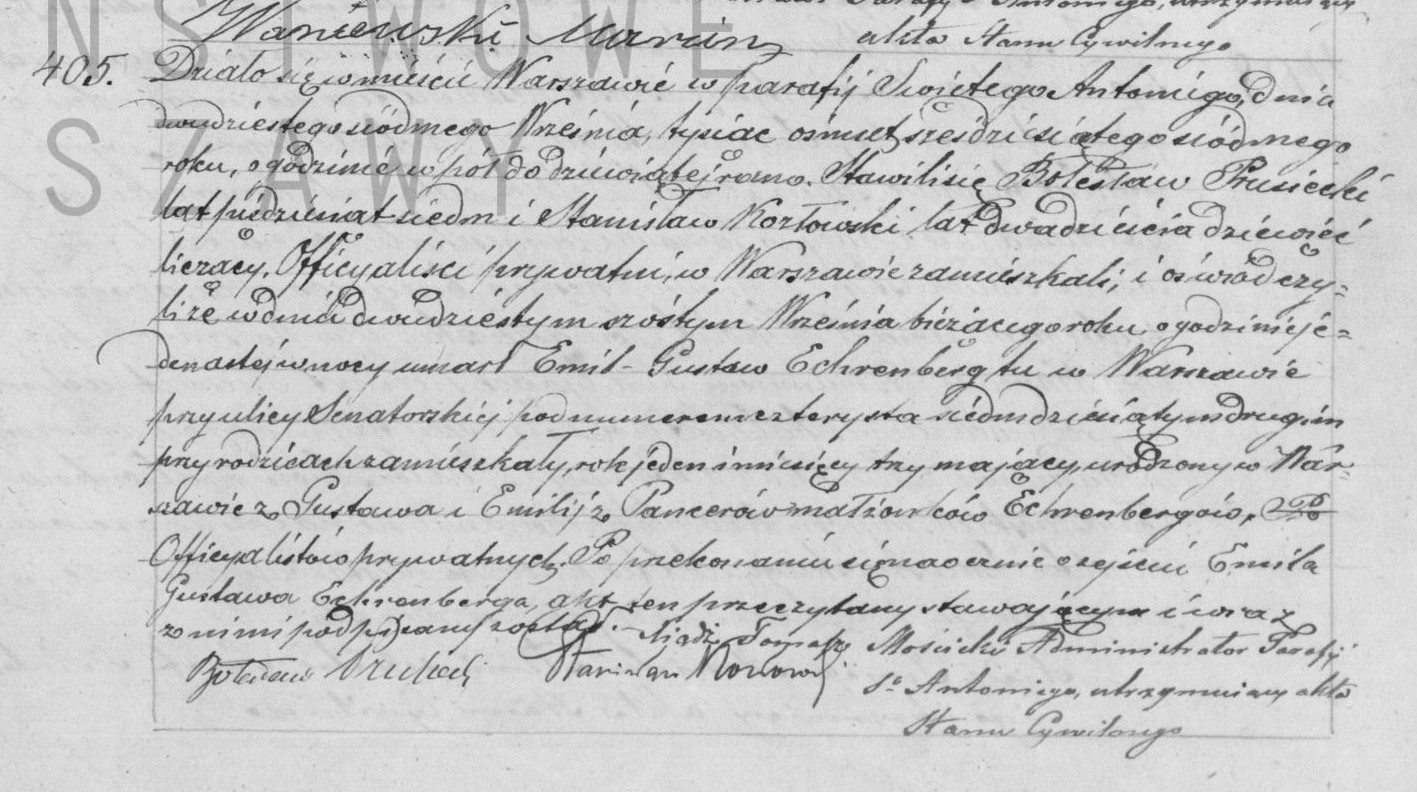 Waniewski Marcin
akta Stanu Cywilnego
N S T W O W E
S Z A W Y
405. Działo się w mieście Warszawie w parafij Świętego Antoniego, dnia
dwudziestego siódmego Września, tysiąc ośmset sześdziesiątego siódmego
roku, o godzinie w pół do dziewiątej rano. Stawili się Bolesław Prusiecki
lat piędziesiat siedm i Stanisław Kozłowski lat dwadzieścia dziewięć
liczący, Officyaliści prywatni, w Warszawie zamieszkali; i oświadczy=
li że w dniu dwudziestym szóstym Września bieżącego roku o godzinie je=
denastej w nocy umarł Emil-Gustaw Echrenberg tu w Warszawie
przy ulicy Senatorskiej pod numerem czterysta siedmdziesiątym drugim
przy rodzicach zamieszkały, rok jeden i miesięcy trzy mający, urodzony w War=
szawie z Gustawa i Emilij z Pancerów małżonków Echrenbergów, Po
Officyalistów prywatnych. Po przekonaniu się naocznie o zejściu Emila
Gustawa Echrenberga, akt ten przeczytany stawającym i wraz
z nimi podpisany został. Xiądz Tomasz Mościcki Administrator Parafij
Bolesław Prusiecki Stanisław Kozłowski Sº Antoniego, utrzymujący akta
Stanu Cywilnego